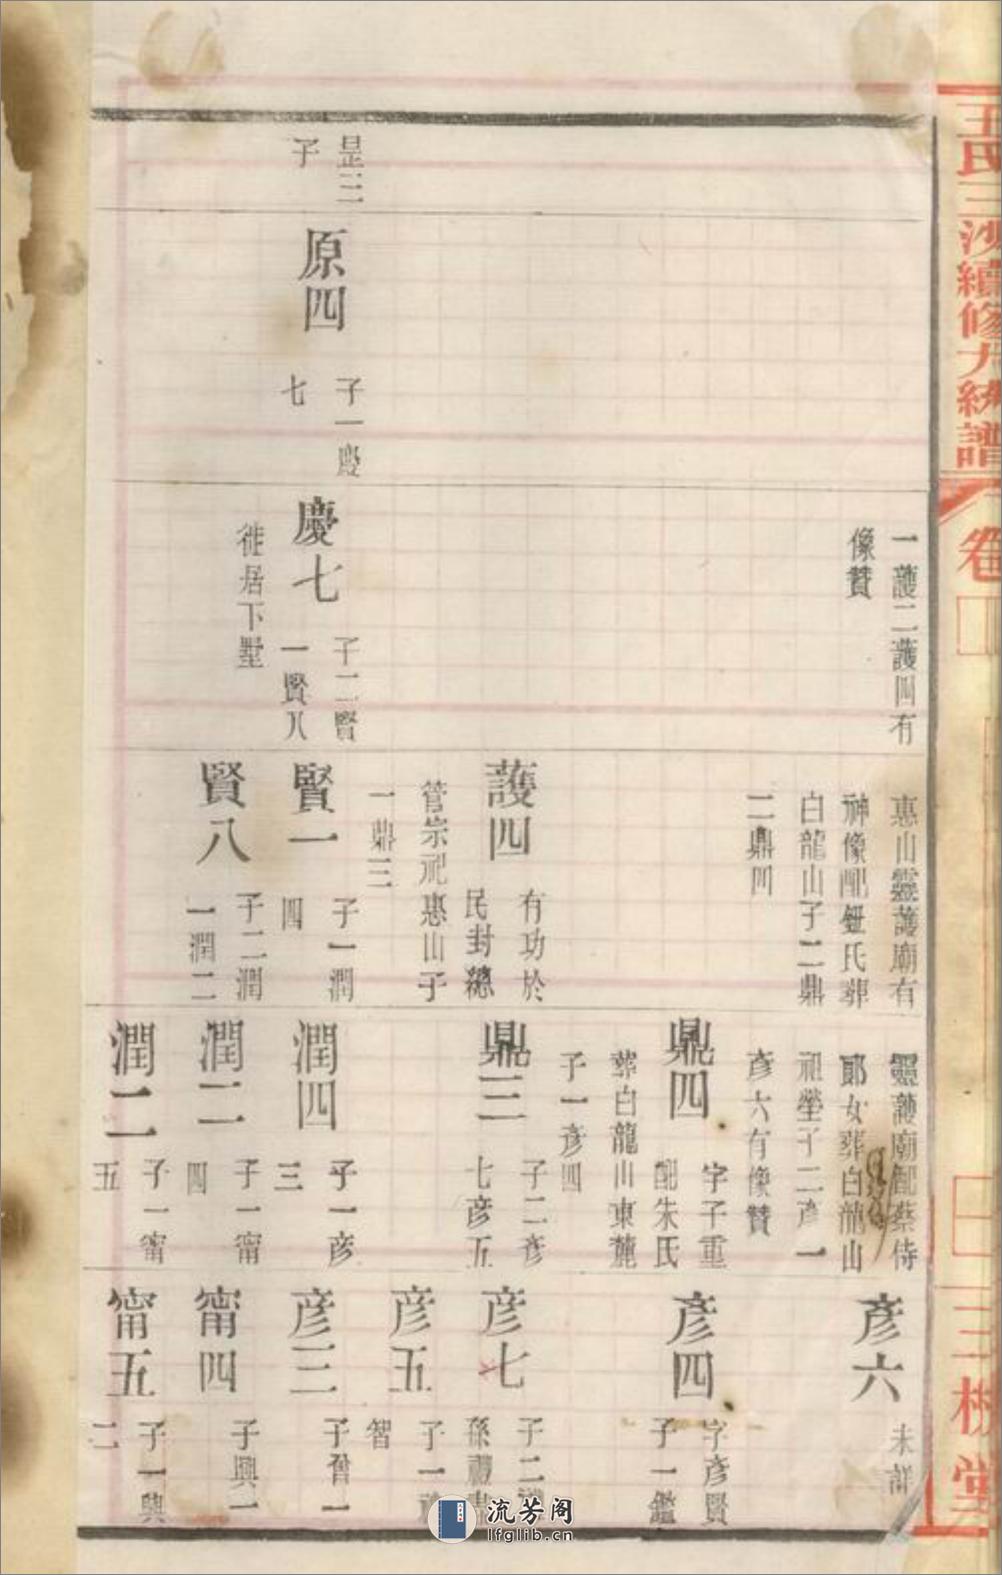 王氏三沙續修大統譜
卷
三槐堂
昰三
子
原四
子一慶
七
一護二護四有
像贊
慶七
子二賢
一賢八
徙居下墅
惠山靈護廟有
神像配鈕氏葬
白龍山子二鼎
二鼎四
護四
有功於
民封總
管宗祀惠山子
一鼎三
賢一
子一潤
四
賢八
子二潤
一潤二
靈護廟配蔡侍
郎女葬白龍山
祖塋子二彥一
彥六有像贊
鼎四
字子重
配朱氏
葬白龍山東麓
子一彥四
鼎三
子二彥
七彥五
潤四
子一彥
三
潤一
子一甯
四
潤二
子一甯
五
彥六
未詳
彥四
字彥賢
子一鑑
彥七
子二
孫禮
彥五
子一
智
彥三
子曾一
甯四
子興一
甯五
子一興
二
流芳阁
lfglib.cn